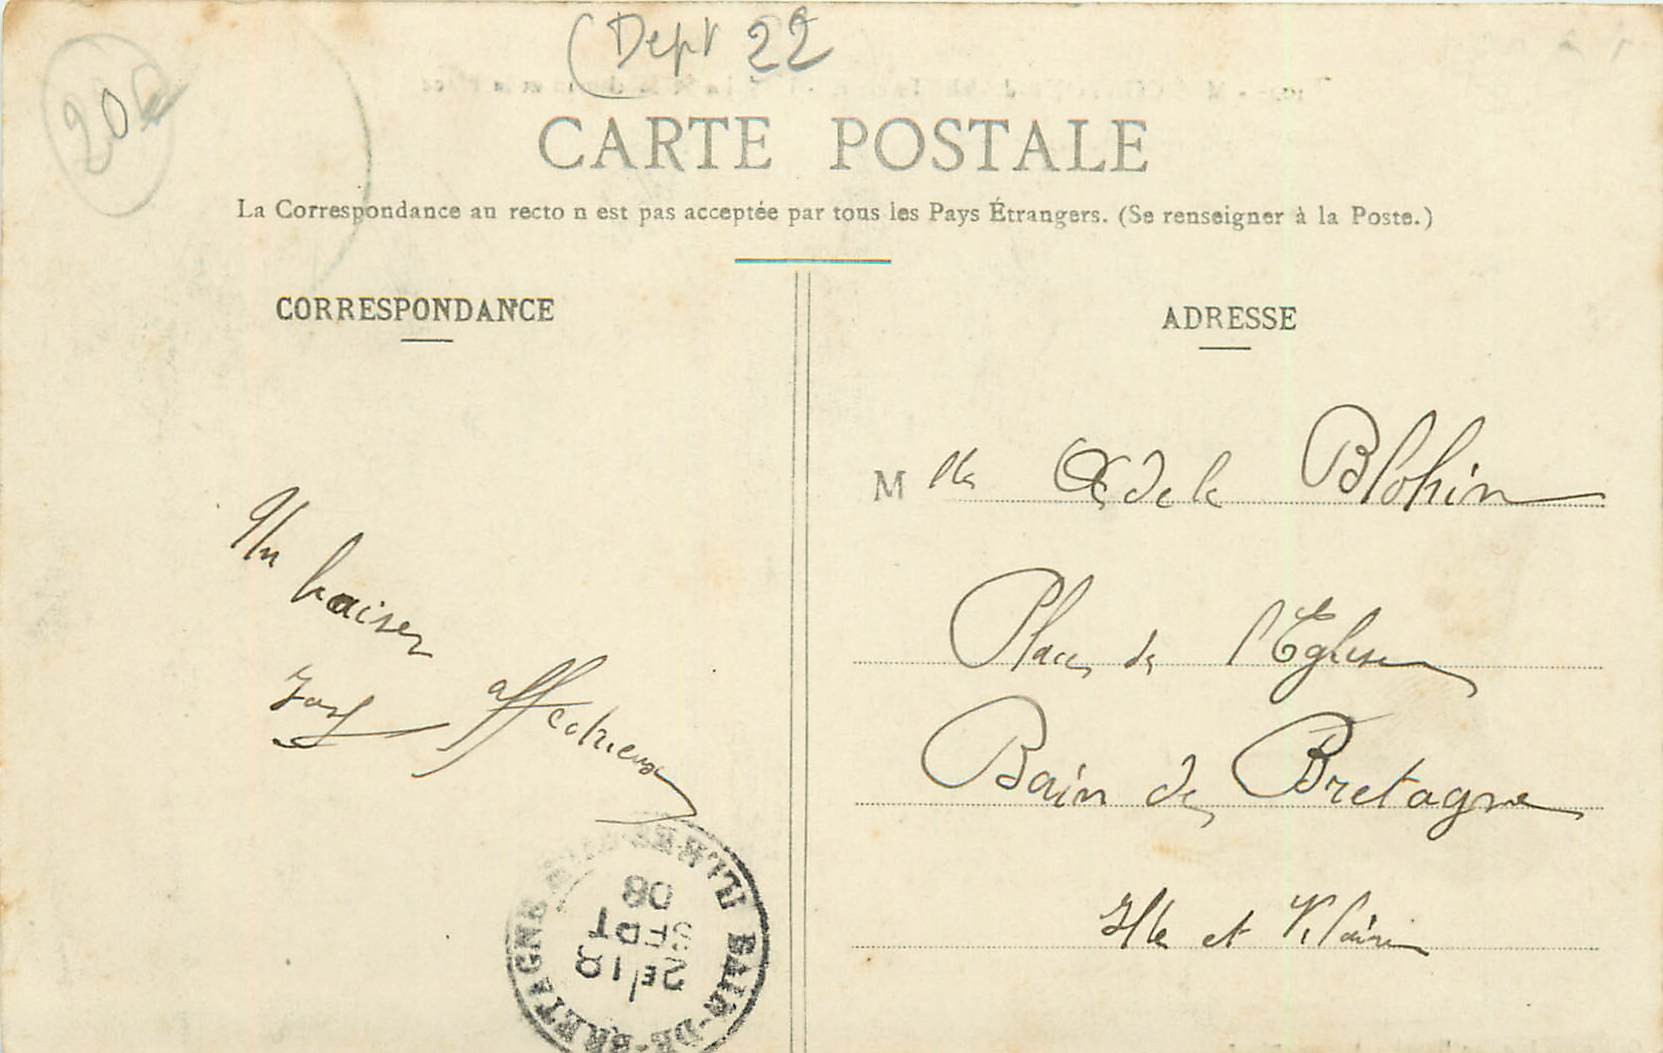 20€
(Dept 22
CARTE POSTALE
La Correspondance au recto n est pas acceptée par tous les Pays Étrangers. (Se renseigner à la Poste.)
CORRESPONDANCE
Un baiser
affectueux
ADRESSE
Mlle Adele Blohin
Place de l'Eglise
Bain de Bretagne
Ille et Vilaine
BAIN-DE-BRETAGNE
2E/18
SEPT
08